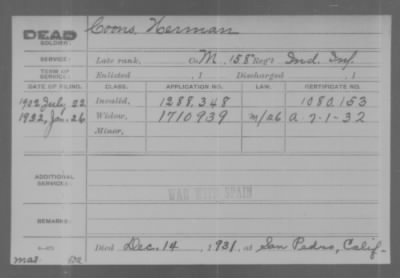 DEAD Coons, Herman
SOLDIER:
SERVICE: Late rank, Co. M, 158 Reg't Ind. Inf.
TERM OF SERVICE: Enlisted , 1 Discharged , 1
DATE OF FILING. CLASS. APPLICATION NO. LAW. CERTIFICATE NO.
1902 July 22 Invalid, 1288,348 1080,153
1932, Jan. 26 Widow, 1710939 m/26 a. 7-1-32
Minor,
ADDITIONAL SERVICES:
WAR WITH SPAIN
REMARKS:
Died Dec. 14, 1931, at San Pedro, Calif.